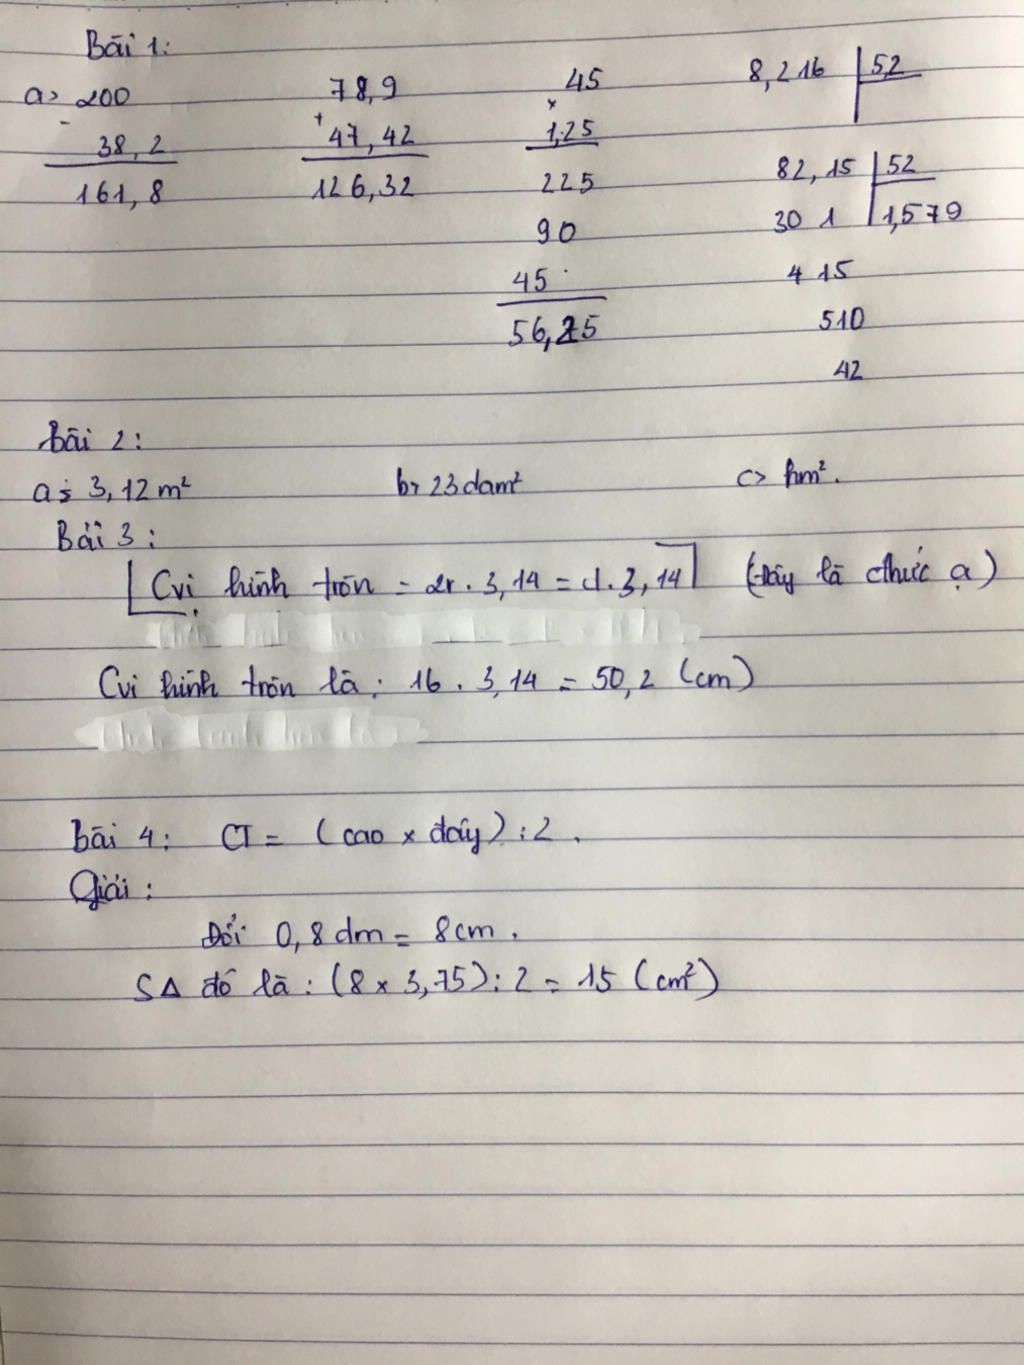 Bài 1:
a> 200 - 38,2 161,8
78,9 + 47,42 126,32
45 × 1,25 225 90 45 56,25
8,216 5,2
82,15 52
30 1 1,579
4 15
510
42
Bài 2:
a> 3,12 m² b> 23 dam² c> hm².
Bài 3:
Cvi hình tròn = 2r . 3,14 = d. 3,14 (đây là cthức ạ)
Cvi hình tròn là: 16 . 3,14 = 50,2 (cm)
Bài 4: CT = (cao x đáy) : 2.
Giải:
Đổi 0,8 dm = 8 cm.
SΔ đó là: (8 x 3,75) : 2 = 15 (cm²)